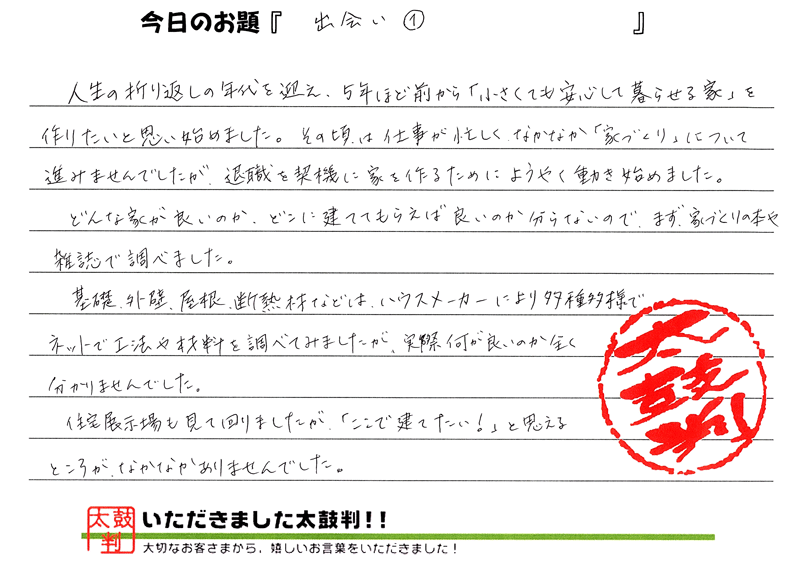 今日のお題『 出会い① 』
人生の折り返しの年代を迎え、5年ほど前から「小さくても安心して暮らせる家」を
作りたいと思い始めました。その頃は仕事が忙しく、なかなか「家づくり」について
進みませんでしたが、退職を契機に家を作るためにようやく動き始めました。
どんな家が良いのか、どこに建ててもらえば良いのか分らないので、まず、家づくりの本や
雑誌で調べました。
基礎、外壁、屋根、断熱材などは、ハウスメーカーにより多種多様で
ネットで工法や材料を調べてみましたが、実際何が良いのか全く
分かりませんでした。
住宅展示場も見て回りましたが、「ここで建てたい!」と思える
ところが、なかなかありませんでした。
太鼓判
太鼓判
いただきました太鼓判!!
大切なお客さまから、嬉しいお言葉をいただきました!